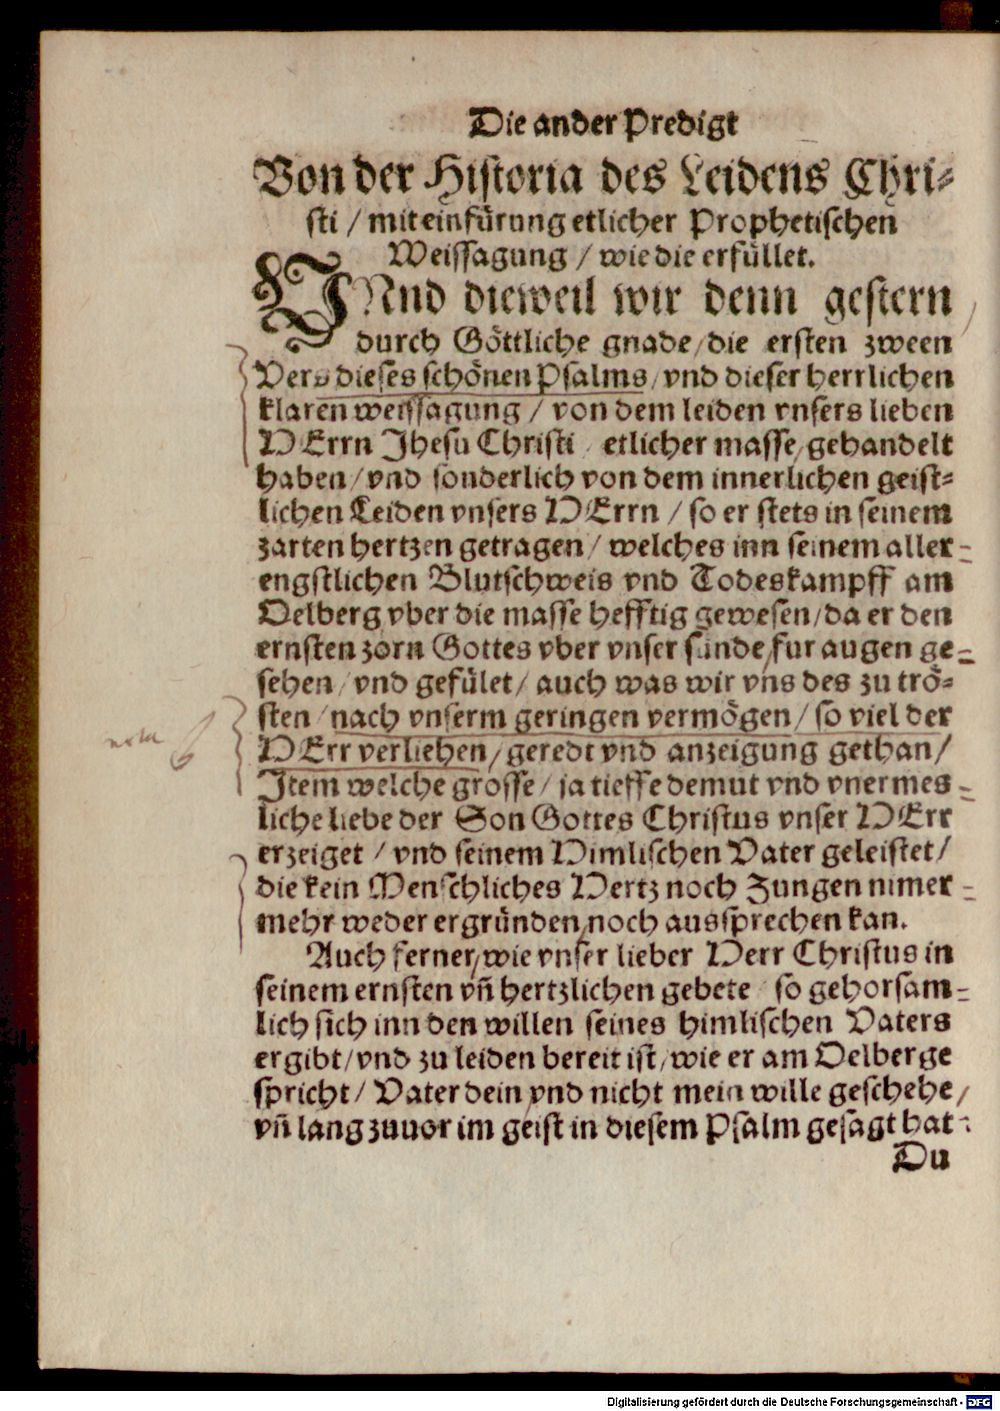 Die ander Predigt
Von der Historia des Leidens Chri-
sti / mit einfürung etlicher Prophetischen
Weissagung / wie die erfüllet.
VNnd dieweil wir denn gestern
durch Göttliche gnade / die ersten zween
Vers dieses schönen Psalms / vnd dieser herrlichen
klaren weissagung / von dem leiden vnsers lieben
HErrn Jhesu Christi / etlicher masse / gehandelt
haben / vnd sonderlich von dem innerlichen geist-
lichen Leiden vnsers HErrn / so er stets in seinem
zarten hertzen getragen / welches inn seinem aller-
engstlichen Blutschweis vnd Todeskampff am
Oelberg vber die masse hefftig gewesen / da er den
ernsten zorn Gottes vber vnser sünde / fur augen ge-
sehen / vnd gefület / auch was wir vns des zu trö-
sten / nach vnserm geringen vermögen / so viel der
HErr verliehen / geredt vnd anzeigung gethan /
Item welche grosse / ja tieffe demut vnd vnermes-
liche liebe der Son Gottes Christus vnser HErr
erzeiget / vnd seinem Himlischen Vater geleistet /
die kein Menschliches Hertz noch Zungen nimer-
mehr weder ergründen / noch aussprechen kan.
Auch ferner / wie vnser lieber Herr Christus in
seinem ernsten vñ hertzlichen gebete / so gehorsam-
lich sich inn den willen seines himlischen Vaters
ergibt / vnd zu leiden bereit ist / wie er am Oelberge
spricht / Vater dein / vnd nicht mein wille geschehe /
vñ lang zuuor im geist in diesem Psalm gesagt hat :
Du
Digitalisierung gefördert durch die Deutsche Forschungsgemeinschaft - DFG